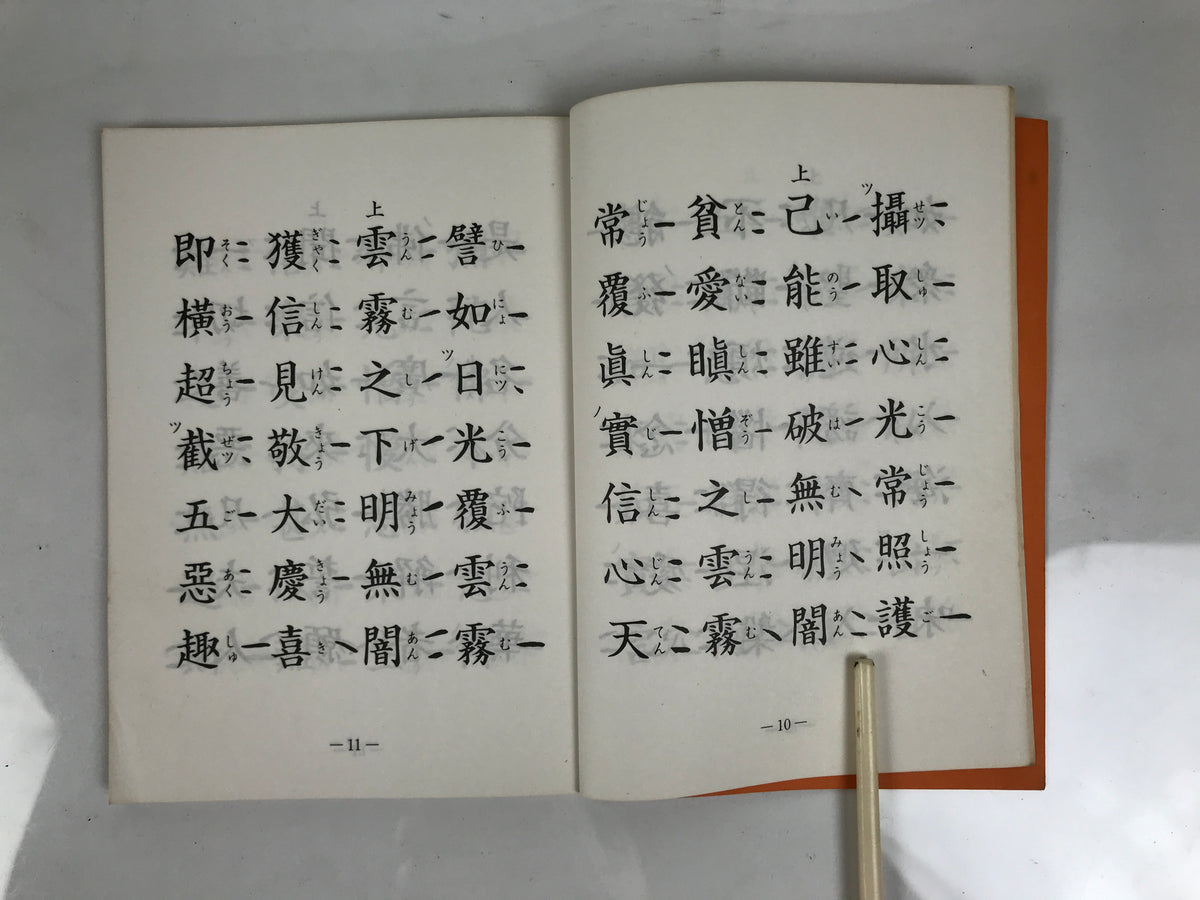 攝取心光常照護
せツ しゅ しん こう じょう しょう ご
ツ
上
己能雖破無明闇
い のう すい は む みょう あん
貪愛瞋憎之雲霧
とん ない しん ぞう し うん む
常覆眞實信心天
じょう ふ しん じ しん じん てん
ノ
―10―
譬如日光覆雲霧
ひ にょ にツ こう ふ うん む
ツ
上
雲霧之下明無闇
うん む し げ みょう む あん
獲信見敬大慶喜
ぎゃく しん けん きょう だい きょう き
即橫超截五惡趣
そく おう ちょう ぜツ ご あく しゅ
ツ
―11―